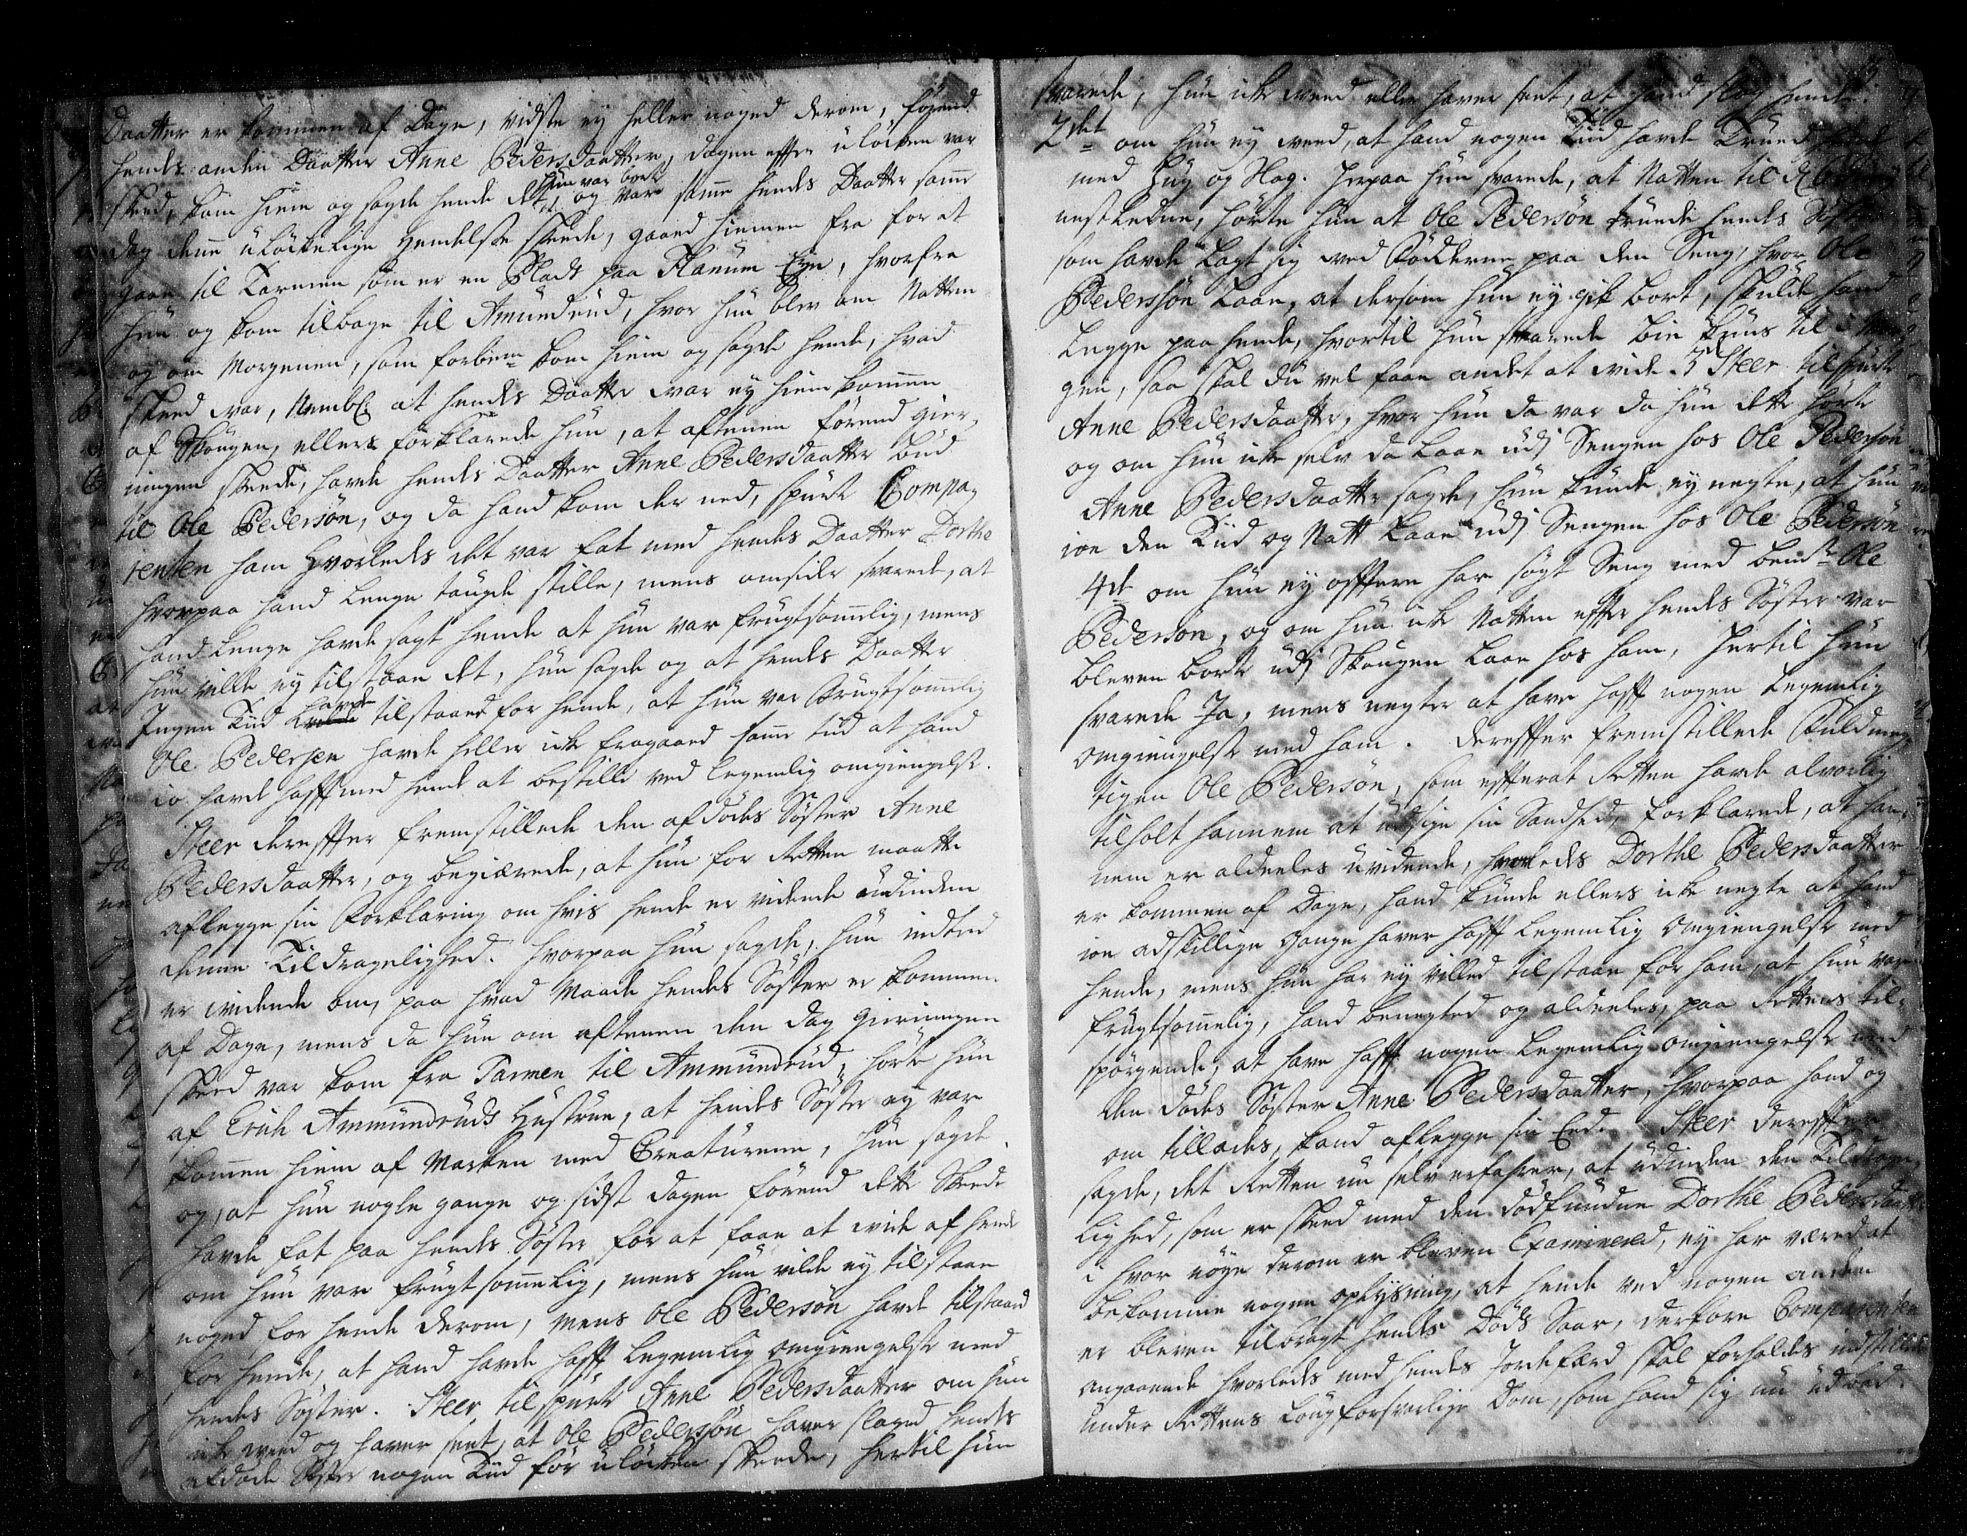 Daatter er kommen af Dage, vidste ey heller noged derom, førend
hendes anden Daatter Anne Pedersdaatter, dagen effter uløcken var
skeed, kom hiem og sagde hende det, hun var bort og var samme hendes Daatter samme
dag denne uløckelige Hendelse skeede, gaaed hiemmen fra for at
gaae til Tarmen som er en Plads paa Planum Eye, hvorfra
hun og kom tilbage til Amundrud, hvor hun blev om Natten
og om Morgenen, som forbem: kom hiem og sagde hende, hvad
skeed var, Nembl: at hendes Daatter var ey hiemkommen
af Skougen, ellers forklarede hun, at aftenen førend gier-
ningen skeede, havde hendes Daatter Anne Pedersdaatter bud
til Ole Pedersøn, og da hand kom der ned, spurte Compa-
rentten ham hvorledes det var fat med hendes Daatter Dorthe
hvorpaa hand lenge taugde stille, mens omsider svarede, at
hand lenge havde sagt hende at hun var frugtsommelig, mens
hun vilde ey tilstaae det, hun sagde og at hendes Daatter
Ingen Tiid havde tilstaaed for hende, at hun var frugtsommelig
Ole Pedersen havde heller icke fragaaed samme tiid at hand
io havde hafft med hende at bestille ved legemlig omgiengelse.
Steer dereffter fremstillede den afdødes Søster Anne
Pedersdaatter, og begiærede, at hun for Retten maatte
aflegge sin Forklaring om hvis hende er vidende udinden
denne Tildragelighed. hvorpaa hun sagde, hun intted
er vidende om, paa hvad Maade hendes Søster er kommen
af Dage, mens da hun om aftenen den dag gierningen
skeed var kom fra Tarmen til Ammundrud, hørte hun
af Erich Ammundruds Hustrue, at hendes Søster ey var
kommen hiem af Marken med Creaturene, hun sagde
og, at hun nogle gange og sidst dagen førend dette skeede
havde fat paa hendes Søster for at faae at vide af hende
om hun var frugtsommelig, mens hun vilde ey tilstaae
noged for hende derom, mens Ole Pedersøn havde tilstaaed
for hende, at hand havde hafft legemlig omgiengelse med
hendes Søster. Steer tilspurte Anne Pedersdaatter om hun
icke veed og haver seet, at Ole Pedersøn haver slaged hendes
afdøde Søster nogen Tiid før uløcken skeede, hertil hun
svarede, hun icke veed eller haver seet, at hand slog hende.
2det om hun ey veed, at hand nogen Tiid havde Truet hende
med hug og Slag. herpaa hun svarede, at Natten til
nestleden, hørte hun at Ole Pedersøn truede hendes Søster
som havde lagt sig ved Fødderne paa den Seng, hvor Ole
Pedersøn laae, at dersom hun ey gik bort, skulde hand
legge paa hende, hvortil hun svarede bie kuns til i Mor-
gen, saa skal du vel faae andet at vide. 3. Steer tilspurte
Anne Pedersdaatter, hvor hun da var da hun dette hørte
og om hun icke selv da laae udj Sengen hos Ole Pedersøn
Anne Pedersdaatter sagde, hun kunde ey negte, at hun
ioe den Tiid og Natt laae udj Sengen hos Ole Pedersøn
4de om hun ey offtere har søgt Seng med bemte Ole
Pedersøn, og om hun icke Natten effter hendes Søster var
bleven borte udj Skougen laae hos ham, hertil hun
svarede Ja, mens negter at have hafft nogen legemlig
omgiengelse med ham. dereffter fremstillede Fuldmeg-
tigen Ole Pedersøn, som effterat Retten havde alvorlig
tilholt hannem at udsige sin Sandhed, forklarede, at han-
nem er aldeeles uvidende, hvorledes Dorthe Pedersdaatter
er kommen af Dage, hand kunde ellers icke negte at hand
ioe adskillige gange haver hafft legemlig omgiengelse med
hende, mens hun har ey villed tilstaae for ham, at hun var
frugtsommelig, hand benegted og aldeeles, paa Rettens til-
spørgende, at have hafft nogen legemlig omgiengelse med
den dødes Søster Anne Pedersdaatter, hvorpaa hand og
om tillades, kand aflegge sin Eed. Steer dereffter
sagde, det Retten nu selv erfahrer, at udinden den Tildrage-
lighed, som er skeed med den dødfundne Dorthe Pedersdaatter
i hvor nøye derom er bleven Examinered, ey har været at
bekomme nogen oplysning, at hende ved nogen anden
er bleven tilbragt hendes Døds Saar, derfore Comparenten
angaaende hvorledes med hendes Jordefærd skal forholdes indstillede
under Rettens Lougforsvarlige Dom, som hand sig nu udbad.